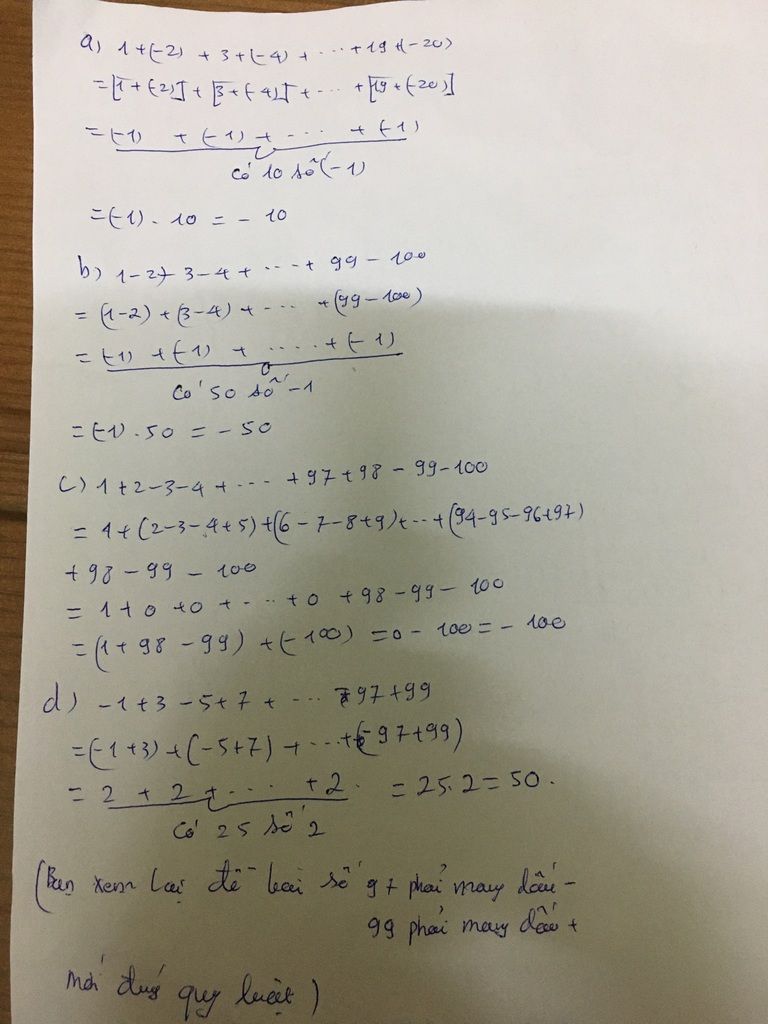 a) 1 + (-2) + 3 + (-4) + ... + 19 + (-20)
= [1 + (-2)] + [3 + (-4)] + ... + [19 + (-20)]
= (-1) + (-1) + ... + (-1)
có 10 số (-1)
= (-1) . 10 = - 10
b) 1 - 2 + 3 - 4 + ... + 99 - 100
= (1-2) + (3-4) + ... + (99-100)
= (-1) + (-1) + .... + (-1)
Có 50 số -1
= (-1) . 50 = - 50
c) 1 + 2 - 3 - 4 + ... + 97 + 98 - 99 - 100
= 1 + (2-3-4+5) + (6-7-8+9) + ... + (94-95-96+97)
+ 98 - 99 - 100
= 1 + 0 + 0 + ... + 0 + 98 - 99 - 100
= (1 + 98 - 99) + (-100) = 0 - 100 = - 100
d) -1 + 3 - 5 + 7 + ... 97 + 99
= (-1+3) + (-5+7) + ... + (-97+99)
= 2 + 2 + ... + 2 = 25.2 = 50.
Có 25 số 2
(Bạn xem lại đề bài số 97 phải mang dấu -
99 phải mang dấu +
mới đúng quy luật)